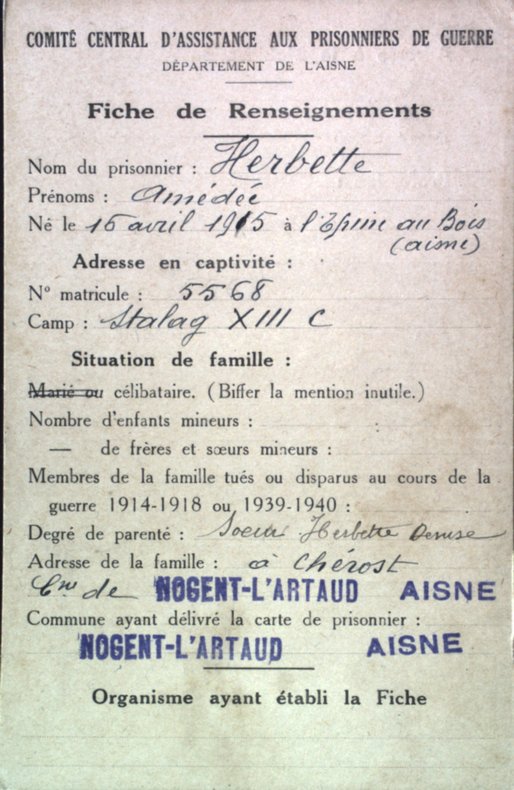 COMITÉ CENTRAL D'ASSISTANCE AUX PRISONNIERS DE GUERRE
DÉPARTEMENT DE L'AISNE
Fiche de Renseignements
Nom du prisonnier : Herbette
Prénoms : Amédée
Né le 15 avril 1915 à l'Epine au Bois
(aisne)
Adresse en captivité :
N° matricule : 5568
Camp : Stalag XIII C
Situation de famille :
Marié ou célibataire. (Biffer la mention inutile.)
Nombre d'enfants mineurs :
— de frères et sœurs mineurs :
Membres de la famille tués ou disparus au cours de la
guerre 1914-1918 ou 1939-1940 :
Degré de parenté : Soeur Herbette Denise
Adresse de la famille : à Chérost
Cne de NOGENT-L'ARTAUD AISNE
Commune ayant délivré la carte de prisonnier :
NOGENT-L'ARTAUD AISNE
Organisme ayant établi la Fiche